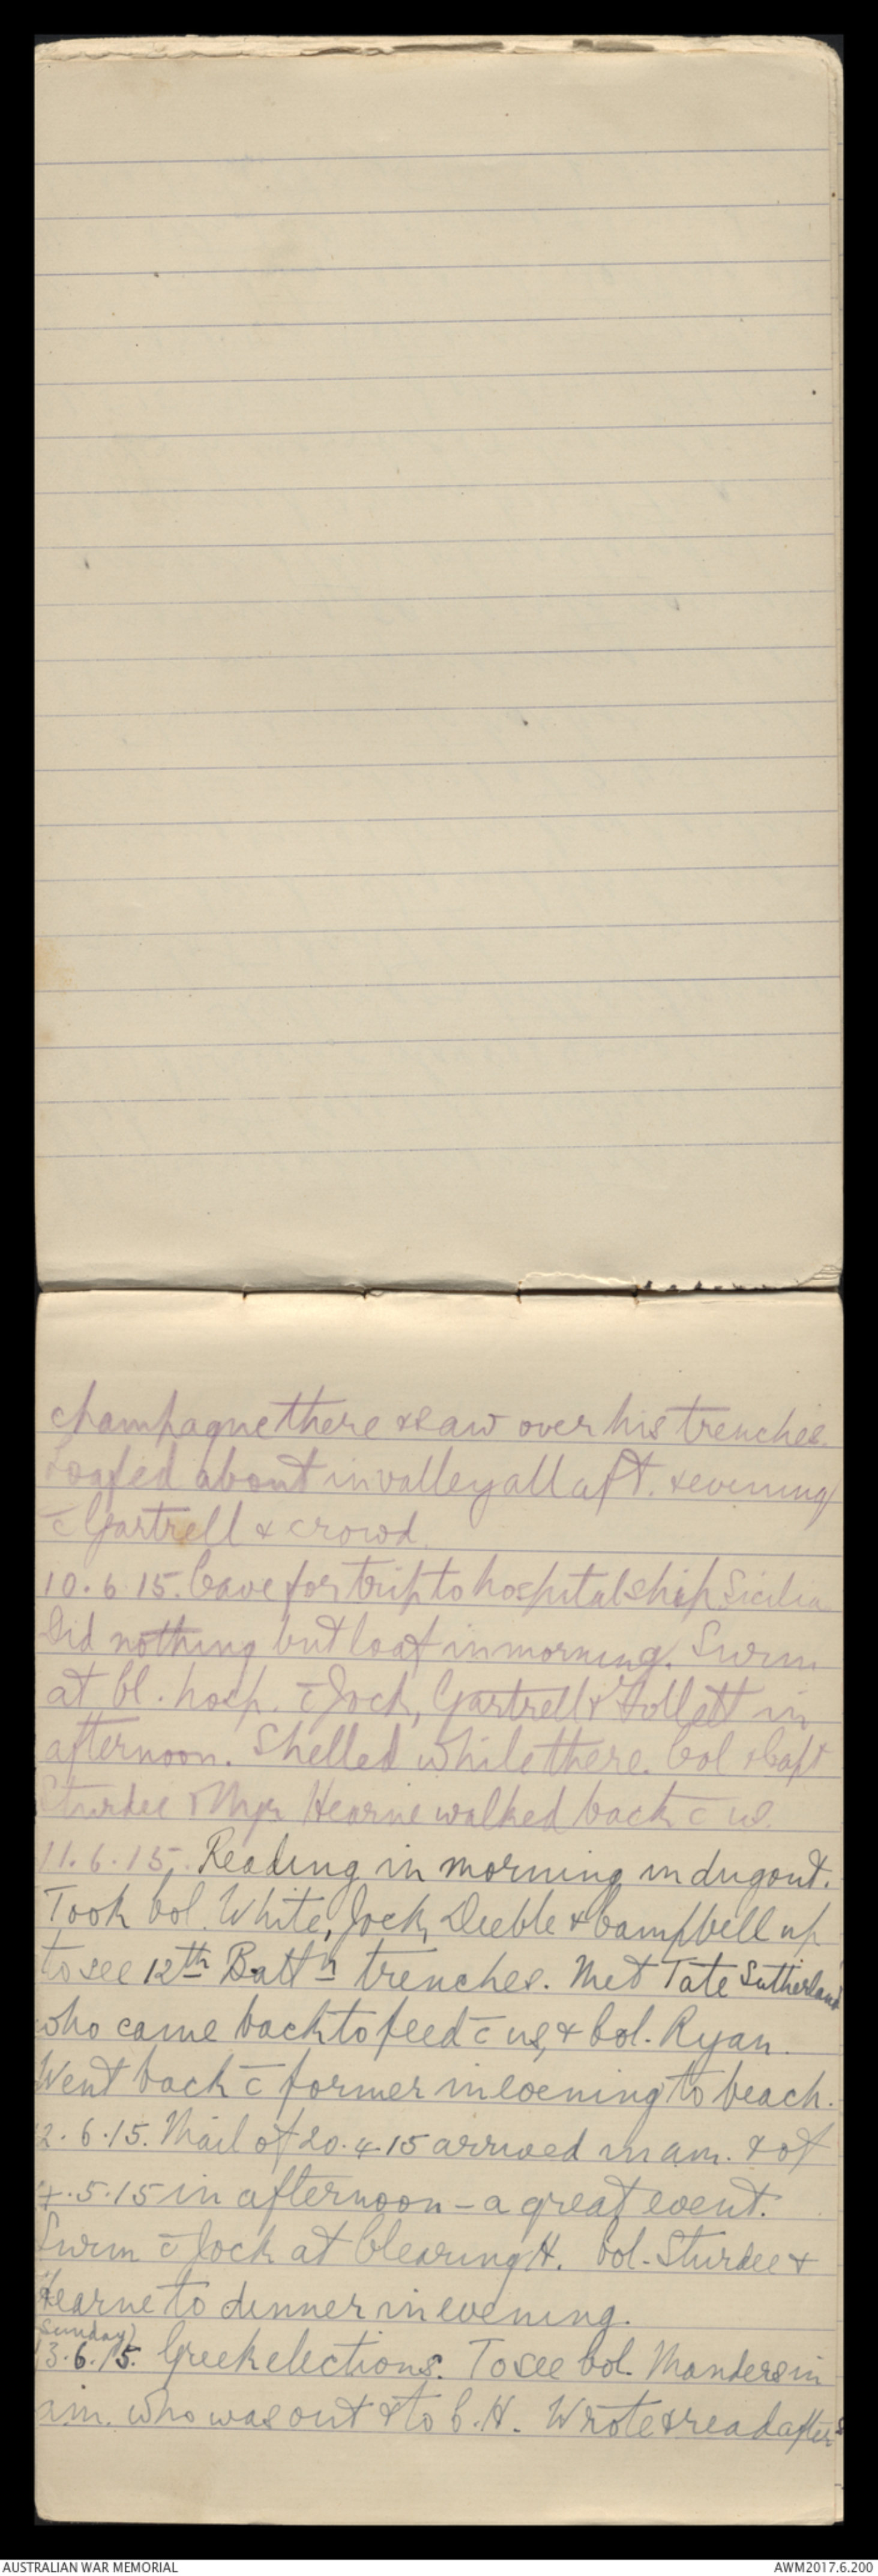 champagne there & saw over his trenches.
Loafed about in valley all aft. & evening
c̄ Gartrell & crowd.
10.6.15. Cave for trip to hospital ship Sicilia
Did nothing but loaf in morning. Swim
at Cl. hosp. c̄ Jock, Gartrell & Follett in
afternoon. Shelled while there. Col & Capt
Sturdee & Mjr Hearne walked back c̄ us.
11.6.15. Reading in morning in dugout.
Took Col. White, Jock, Deeble & Campbell up
to see 12th Battn trenches. Met Tate Sutherland
who came back to feed c̄ us, & Col. Ryan.
Went back c̄ former in evening to beach.
12.6.15. Mail of 20.4.15 arrived in am. & of
4.5.15 in afternoon – a great event.
Swim c̄ Jock at Clearing H. Col. Sturdee &
Hearne to dinner in evening.
(Sunday)
13.6.15. Greek elections. To see Col. Manders in
am. who was out & to C.H. Wrote & read after
AUSTRALIAN WAR MEMORIAL
AWM2017.6.200